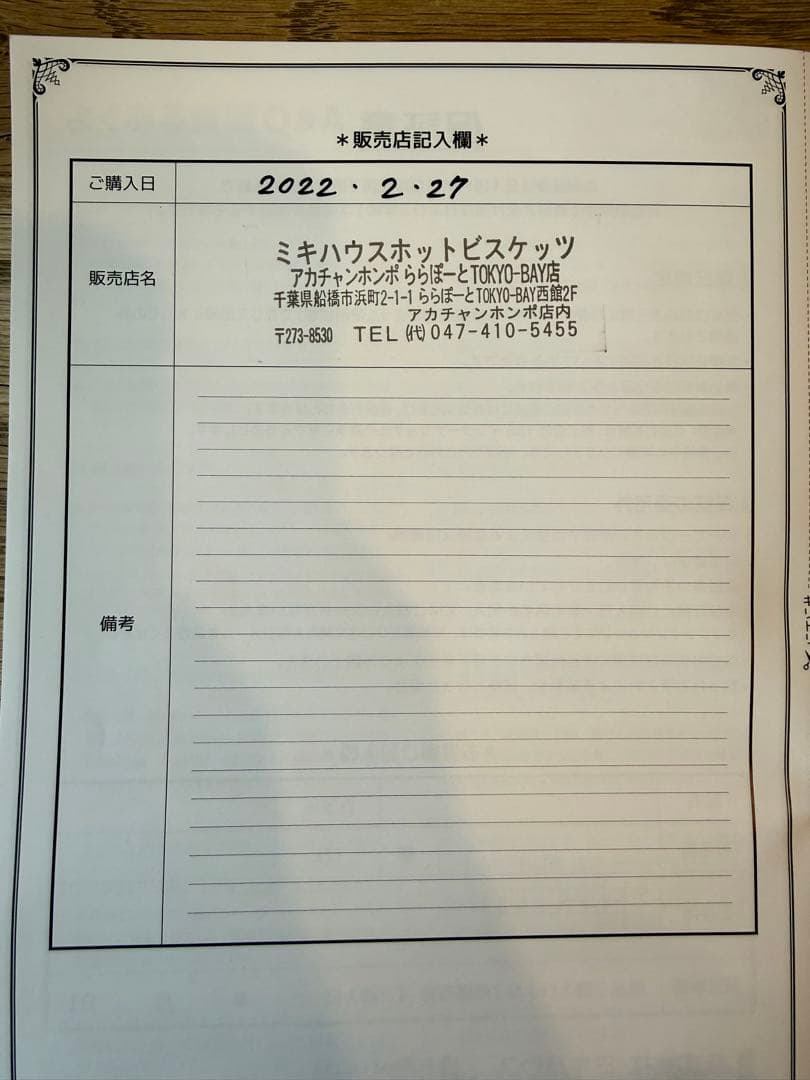 ＊販売店記入欄＊
ご購入日
2022．2．27
販売店名
ミキハウスホットビスケッツ
アカチャンホンポ ららぽーとTOKYO-BAY店
千葉県船橋市浜町2-1-1 ららぽーとTOKYO-BAY西館2F
アカチャンホンポ店内
〒273-8530 TEL ㈹ 047-410-5455
備考